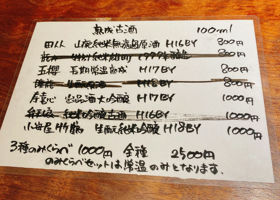 熟成古酒 100ml
田从 山廃純米無濾過原酒 H16BY 800円
1999 800円
玉櫻 五期常温熟成 H17BY 800円
H15BY 800円
屋守 出品酒大吟醸 H17BY 1000円
純米吟醸古酒 H16BY 1000円
小笹屋竹鶴 生酛純米吟醸 H18BY 1000円
3種のみくらべ 1000円 全種 2500円
のみくらべセットは常温のみとなります。